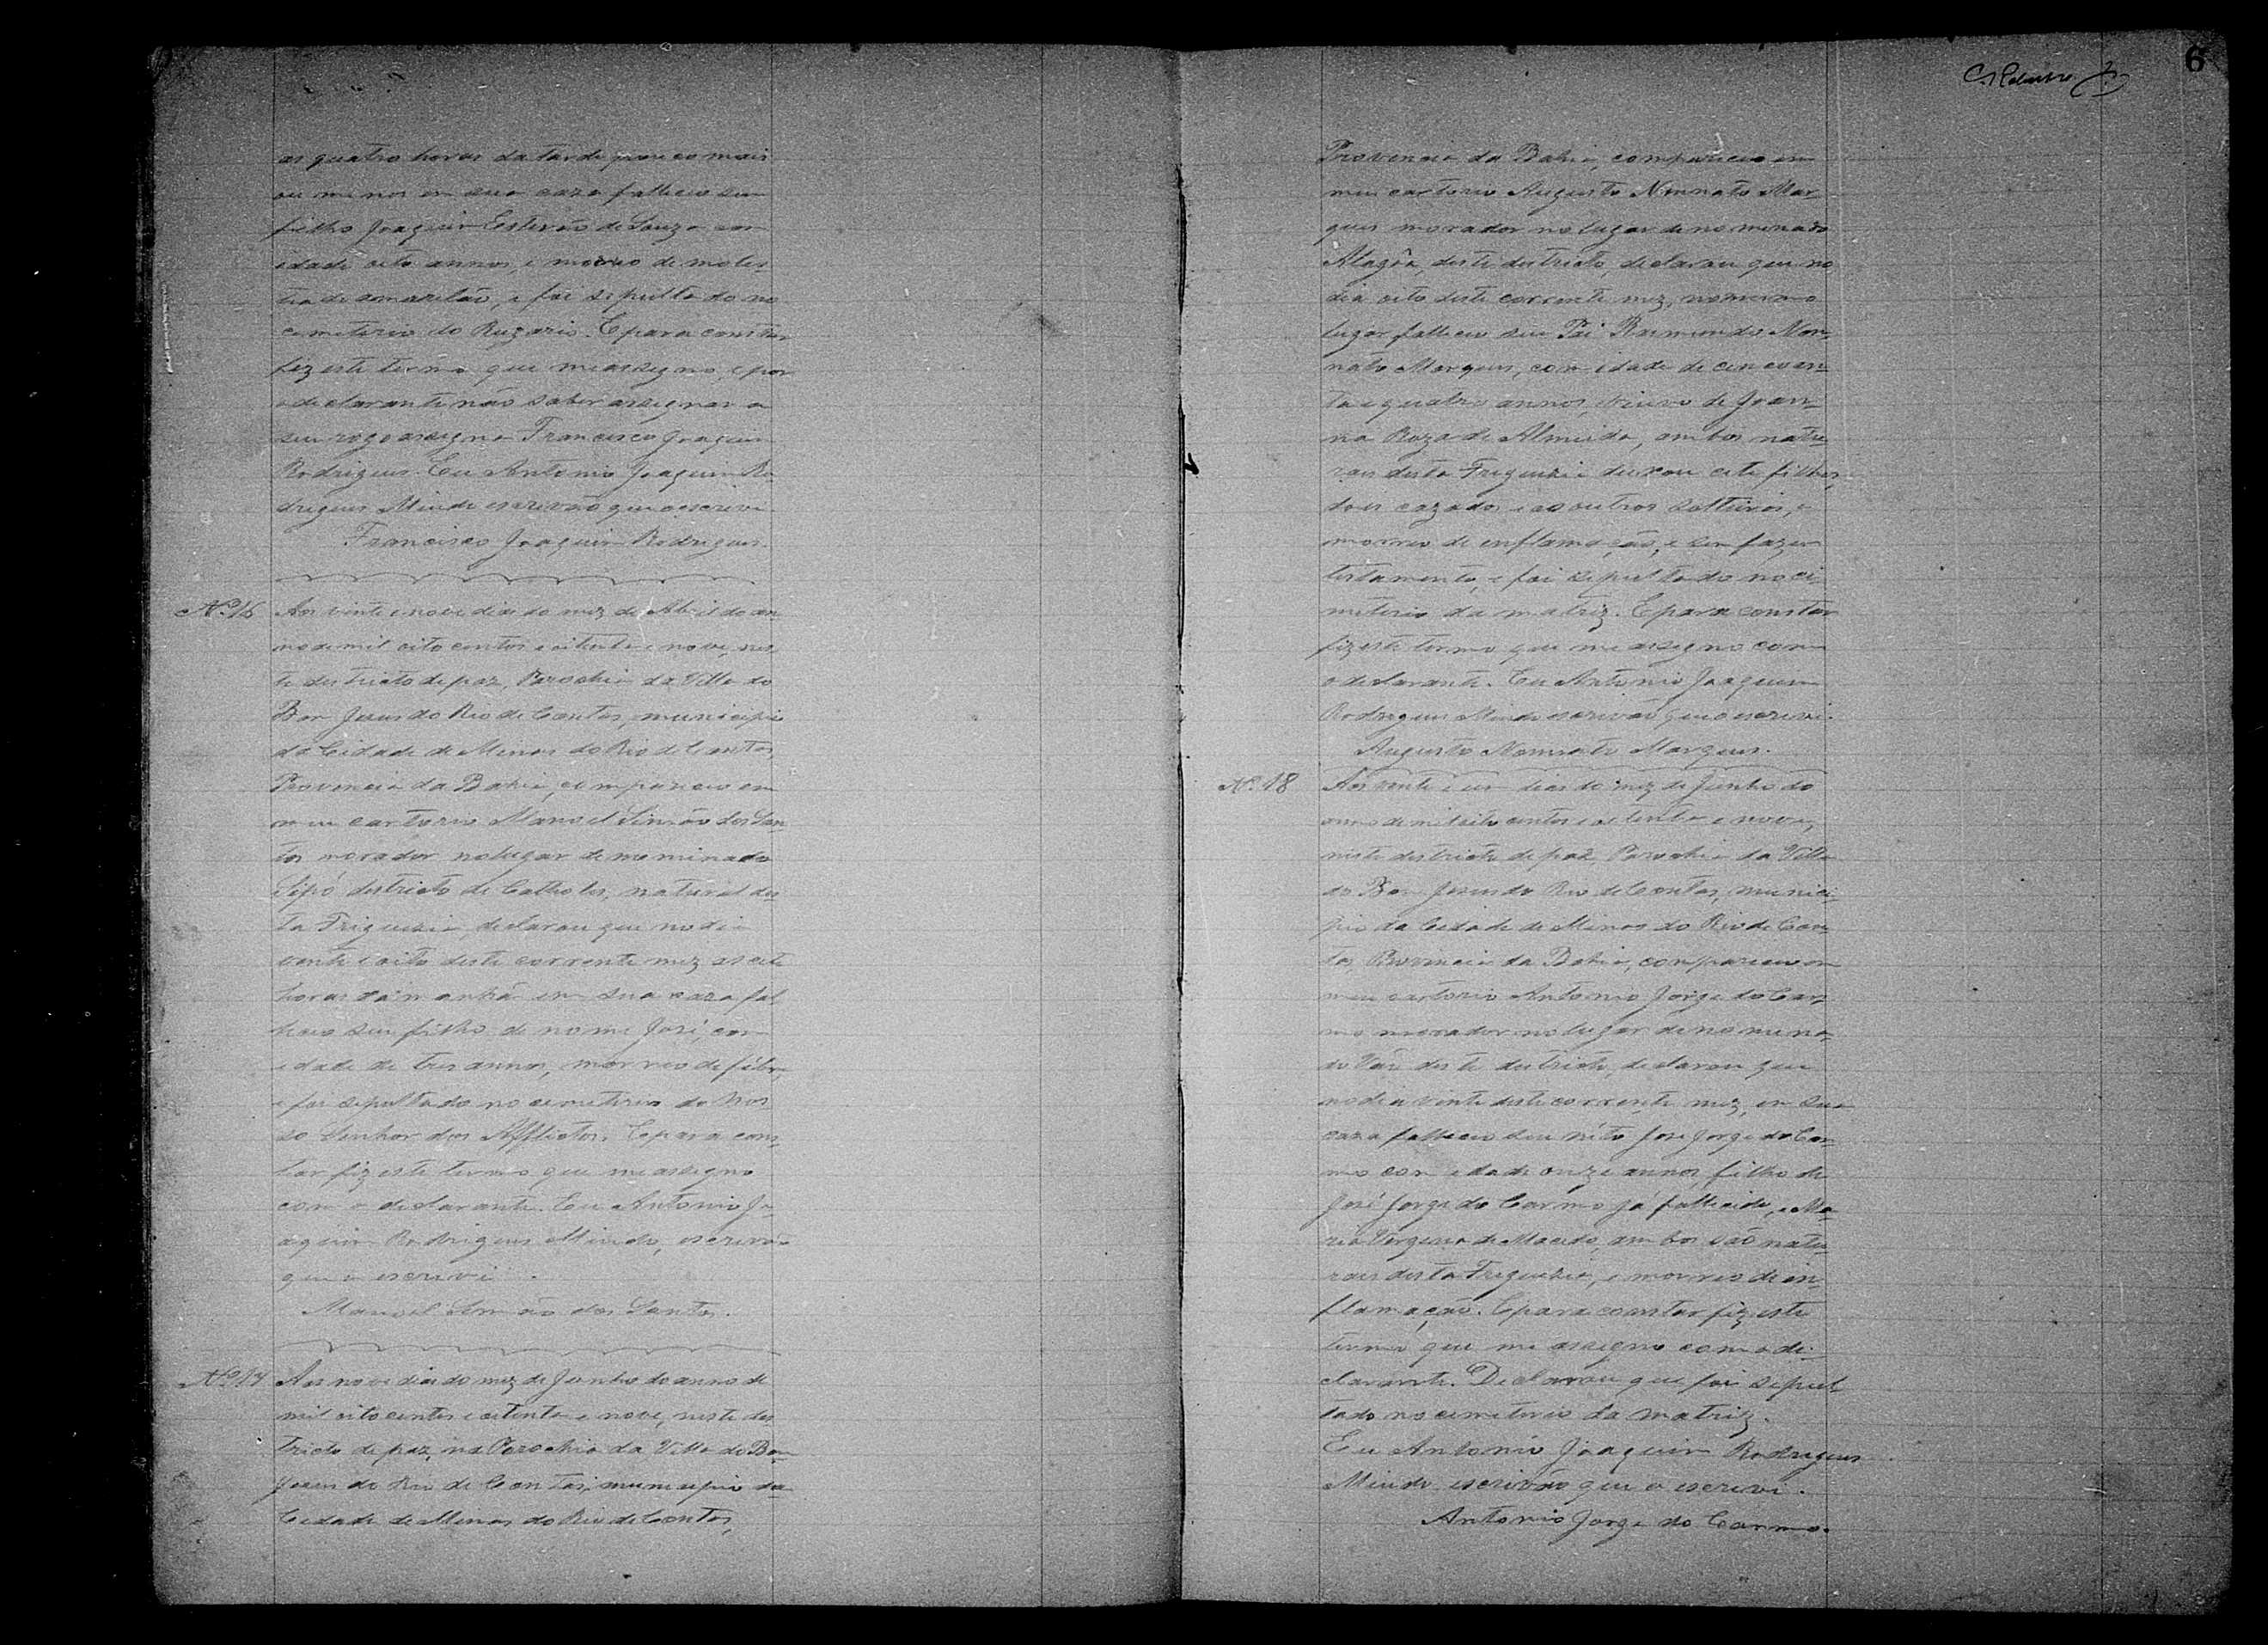 as quatro horas da tarde pouco mais
ou menos em sua caza falleceo seu
filho Joaquim Estevão de Souza com
edade oito annos, e morreo de moles-
tia de amarelão, e foi sepultado no
cemeterio do Ruzario. E para constar
fiz este termo que me assegno, e por
o declarante não saber assegnar a
seu rogo assegna Francisco Joaquim
Rodrigues. Eu Antonio Joaquim Ro-
drigues Mindo escrivão que o escrevi
Francisco Joaquim Rodrigues.
Nº 16 Aos vinte e nove dias do mez de Abril do an-
no de mil oito centos e oitenta e nove, nes-
te destricto de paz, Parochia da Villa do
Bom Jesus do Rio de Contas, municipio
da Cidade de Minas do Rio de Contas,
Provincia da Bahia, compareceo em
meu cartorio Manoel Simão dos San-
tos morador no lugar denominado
Sipó destricto de Catholes, natural des-
ta Freguezia, declarou que no dia
vente e oito deste corrente mez as sete
horas da manhã em sua caza fal-
leceo seu filho de nome José, com
edade de tres annos, morreo de febre,
e foi sepultado no cemeterio do Nos-
so Senhor dos Afflictos. E para cons-
tar fiz este termo que me assegno
com o declarante. Eu Antonio Jo-
aquim Rodrigues Mindo, escrivão
que o escrevi.
Manoel Simão dos Santos.
Nº 17 Aos nove dias do mez de Junho do anno de
mil oito centos e oitenta e nove, neste des-
tricto de paz, na Parochia da Villa do Bom
Jesus do Rio de Contas, municipio da
Cidade de Minas do Rio de Contas,
6
Provincia da Bahia, compareceo em
meu cartorio Augusto Nonnato Mar-
ques morador no lugar denominado
Alagôa, deste destricto, declarou que no
dia oito deste corrente mez, no mesmo
lugar falleceo seu Pai Raimundo Non-
nato Marques, com idade de cencoen-
ta e quatro annos, viuvo de Joan-
na Roza de Almeida, ambos natu-
raes desta Freguezia deixou cete filhos,
dous cazados e os outros solteiros, e
morreo de enflamação, e sem fazer
testamento, e foi sepultado no ce-
meterio da matriz. E para constar
fiz este termo que me assegno com
o declarante. Eu Antonio Joaquim
Rodrigues Mindo escrivão que o escrevi.
Augusto Nonnato Marques.
Nº 18 Aos vente e um dias do mez de Junho do
anno de mil oito centos e oitenta e nove,
neste destricto de paz Parochia da Villa
do Bom Jesus do Rio de Contas, munici-
pio da Cidade de Minas do Rio de Con-
tas, Provincia da Bahia, compareceo em
meu cartorio Antonio Jorge do Car-
mo morador no lugar denomina-
do deste destricto, declarou que
no dia vinte deste corrente mez, em sua
caza falleceo seu néto José Jorge do Car-
mo com edade onze annos, filho de
José Jorge do Carmo já fallecido, e Ma-
ria Vergena de Macedo, ambos são natu-
raes desta Freguezia, e morreo de in-
flamação. E para constar fiz este
termo que me assegno com o de-
clarante. Declarou que foi sepul-
tado no cemeterio da matriz.
Eu Antonio Joaquim Rodrigues
Mindo escrivão que o escrevi.
Antonio Jorge do Carmo.